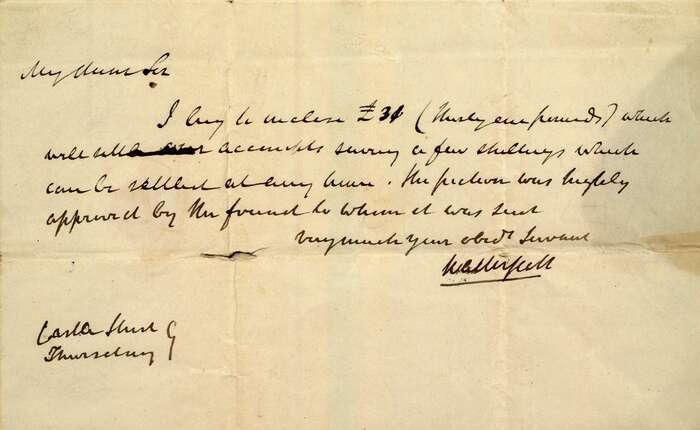 My dear Sir
I beg to inclose £31 (Thirty one pounds) which
will settle accompts saving a few shillings which
can be settled at any time. The picture was highly
approved by the friend to whom it was sent
Very much your obedt Servant
Walter Scott
Castle Street
Thursday